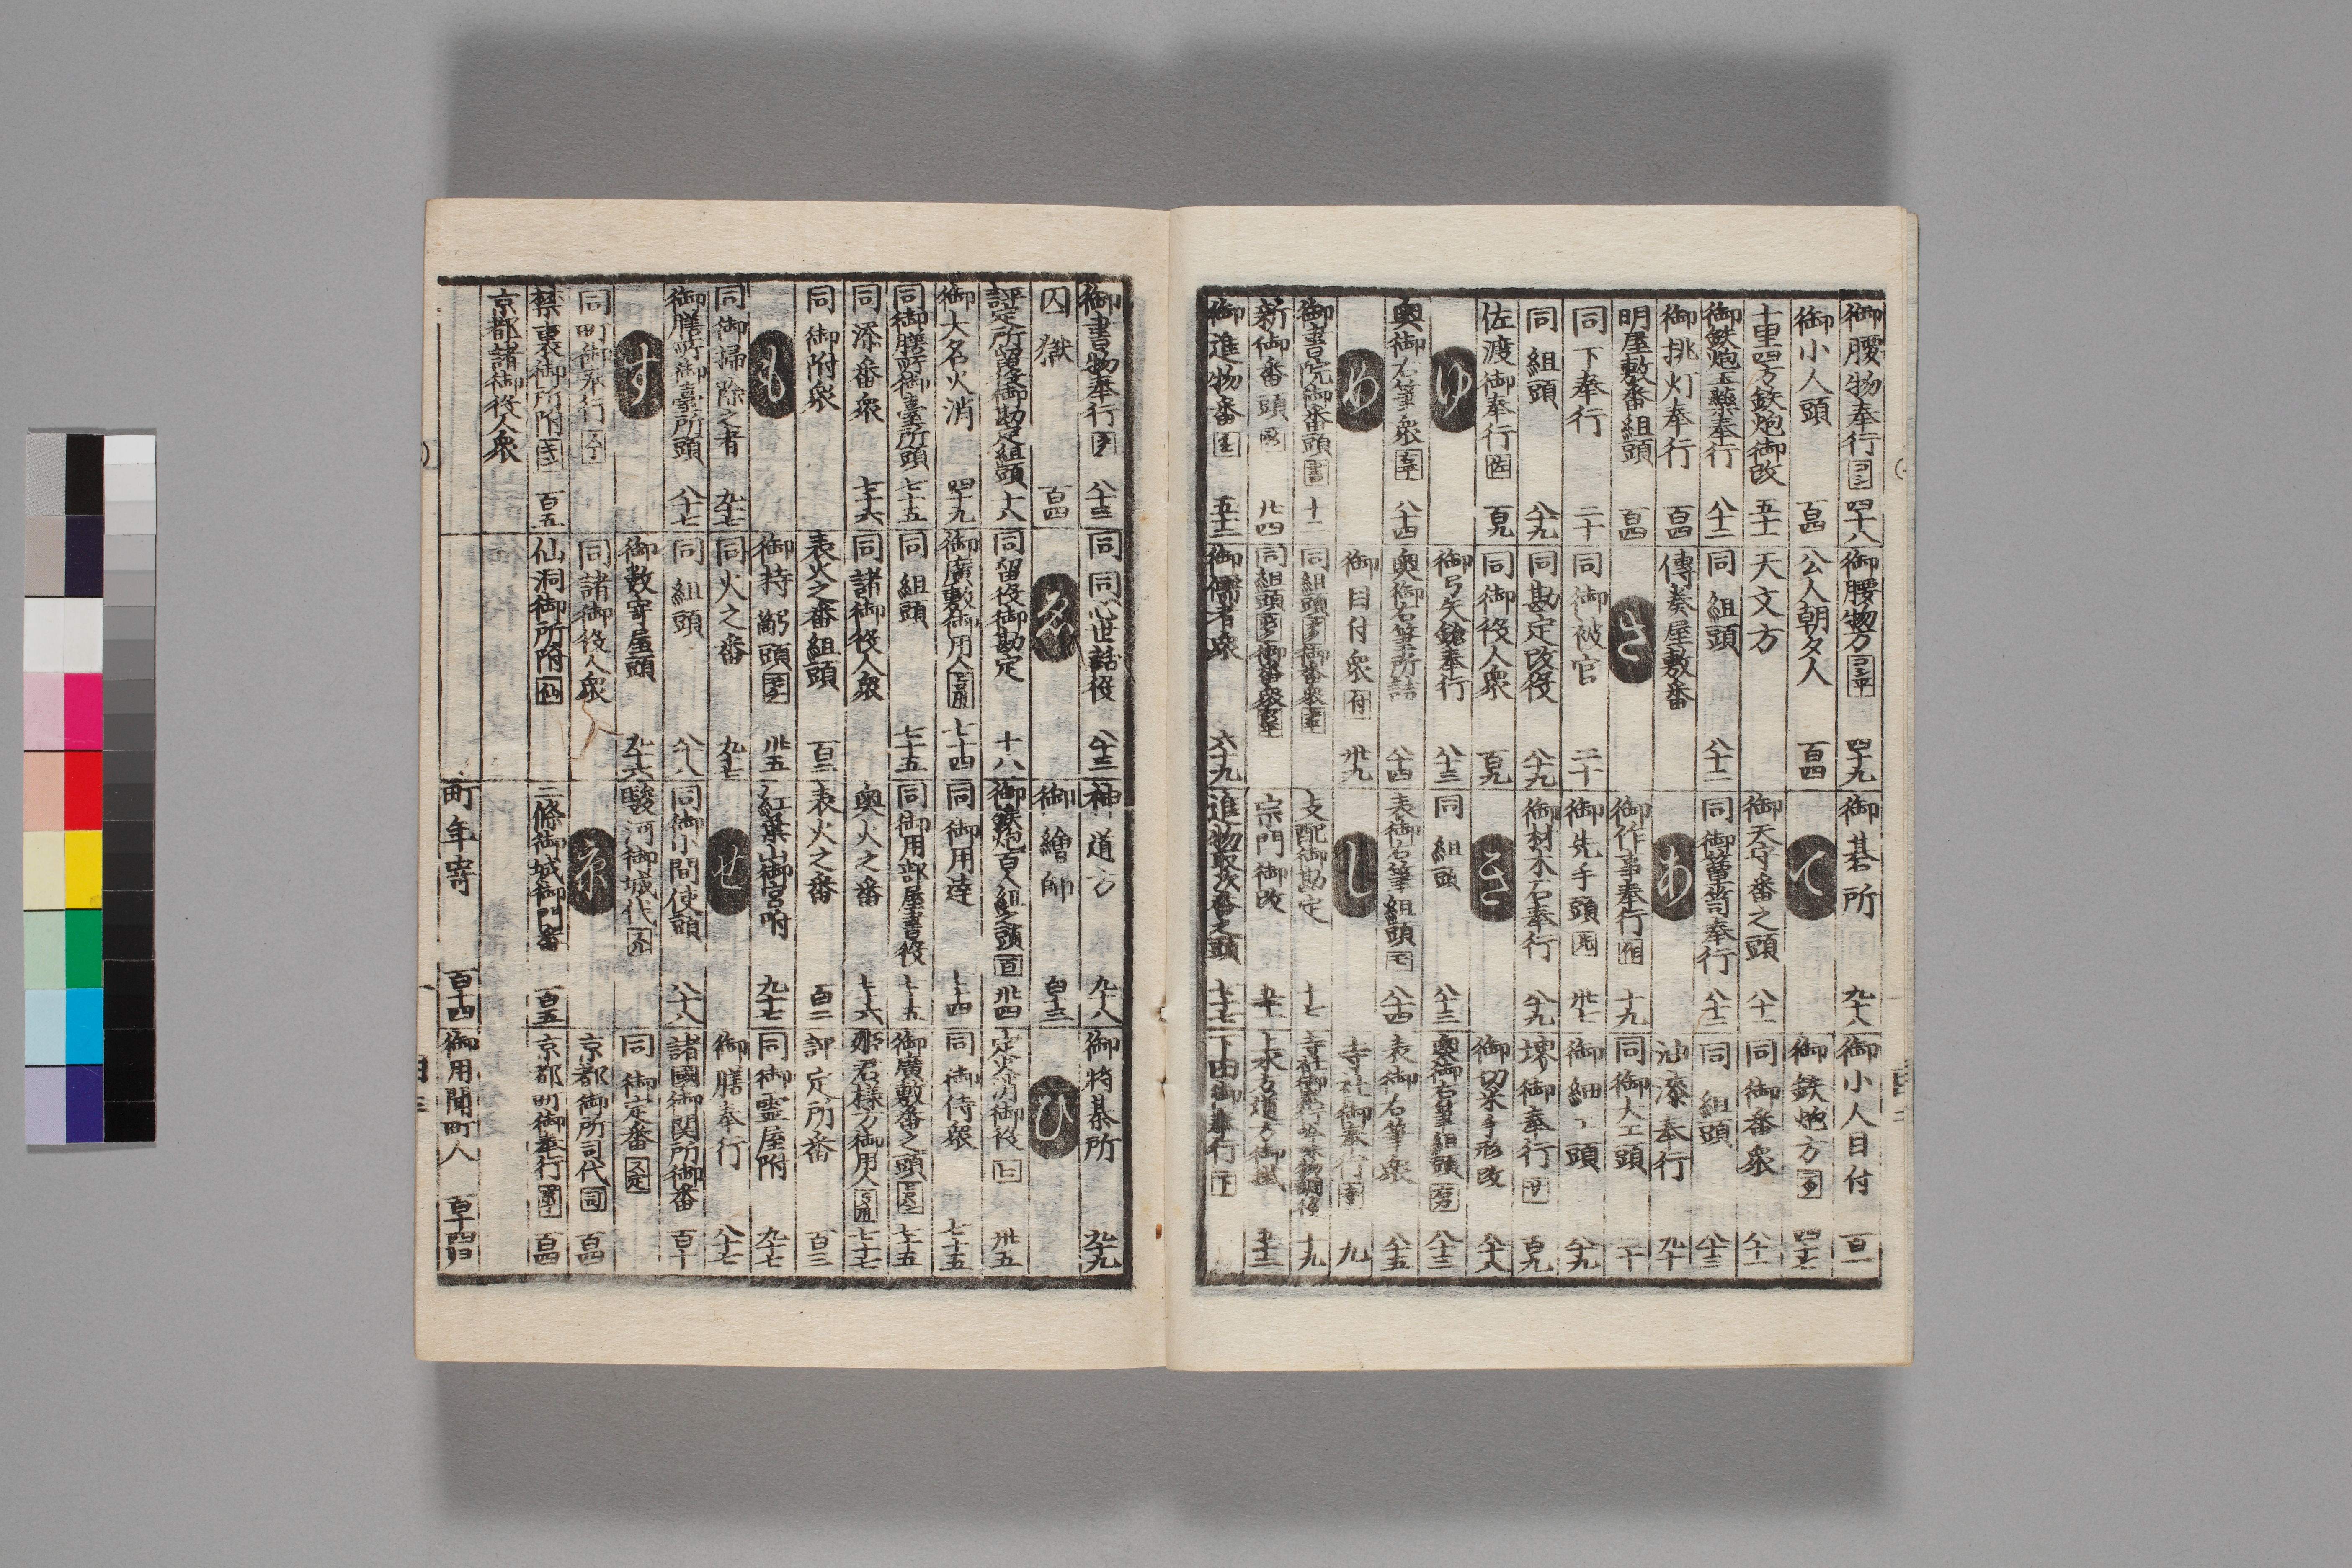 御腰物奉行 四十八
御小人頭 百四
十里四方鉄炮御改 五十一
御鉄炮玉薬奉行 八十二
御挑灯奉行 百四
明屋敷番組頭 百四
同下奉行 二十
同組頭 八十九
佐渡御奉行 佐 百九
ゆ
奥御右筆衆 八十四
め
御書院御番頭 書 十一
新御番頭 廿四
御進物番 五十二
御腰物方 四十九
公人朝夕人 百四
天文方
同組頭 八十二
傳奏屋敷番
さ
同御被官 二十
同勘定改役 八十九
同御役人衆 百九
御弓矢鎗奉行 八十三
奥御右筆所詰 八十四
御目付衆 付 卅九
同組頭 御番衆
同組頭 御番衆
御儒者衆 六十九
御碁所 九十八
て
御天守番之頭 八十一
同御箪笥奉行 八十二
あ
御作事奉行 作 十九
御先手頭 先 卅七
御材木石奉行 八十九
き
同組頭 八十三
表御右筆組頭 八十四
し
支配御勘定 十七
宗門御改
進物取次番之頭 七十七
御小人目付 百一
御鉄炮方 四十七
同御番衆 八十一
同組頭 八十三
油漆奉行 九十
同御大工頭 二十
御細工頭 八十九
堺御奉行 サ 百九
御切米手形改 八十八
奥御右筆組頭 八十三
表御右筆衆 八十五
寺社御奉行 寺 九
寺社御奉行吟味物調役 十九
上水方道方御掛
下田御奉行 下
御書物奉行 八十三
囚獄 百四
評定所留役御勘定組頭 十八
御大名火消 四十九
同御膳所御臺所頭 七十五
同添番衆 七十六
同御附衆
も
同御掃除之者 九十七
御膳所御臺所頭 八十七
す
同町御奉行
禁裏御所附 百五
京都諸御役人衆
同同心世話役 八十三
ゑ
同留役御勘定 十八
御廣敷御用人 七十四
同組頭 七十五
同諸御役人衆
表火之番組頭 百二
御持弱頭 卅五
同火之番 九十七
同組頭 八十八
御数寄屋頭 九十六
同諸御役人衆
仙洞御所附 仙
神道方 九十八
御繪師 百十三
御鉄炮百人組之頭 百 卅四
同御用達 七十四
同御用部屋書役 七十五
奥火之番 七十六
表火之番 百二
紅葉山御宮附 九十七
せ
同御小間使頭 八十八
駿河御城代
京
二條御城御門番 百五
町年寄 百十四
御将棊所 九十九
ひ
定火消御役 卅五
同御侍衆 七十五
御廣敷番之頭 七十五
姫君様方御用人 七十七
評定所番 百三
同御霊屋附 九十七
御膳奉行 八十七
諸國御関所御番 百十
同御定番
京都御所司代 司 百四
京都町御奉行 百四
御用聞町人 百十四